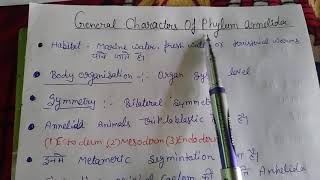 General Charactors Of Phylum Annelida
• Habitat - Marine water, fresh water or terrestrial worms
पाये जाते है।
• Body organisation :- Organ level
• Symmetry :- Bilateral Symmet
• Annelida Animals Triploblastic है।
(1) Ectoderm, (2) Mesoderm (3) Endoder
• उनमे Metameric Sigmintation है।